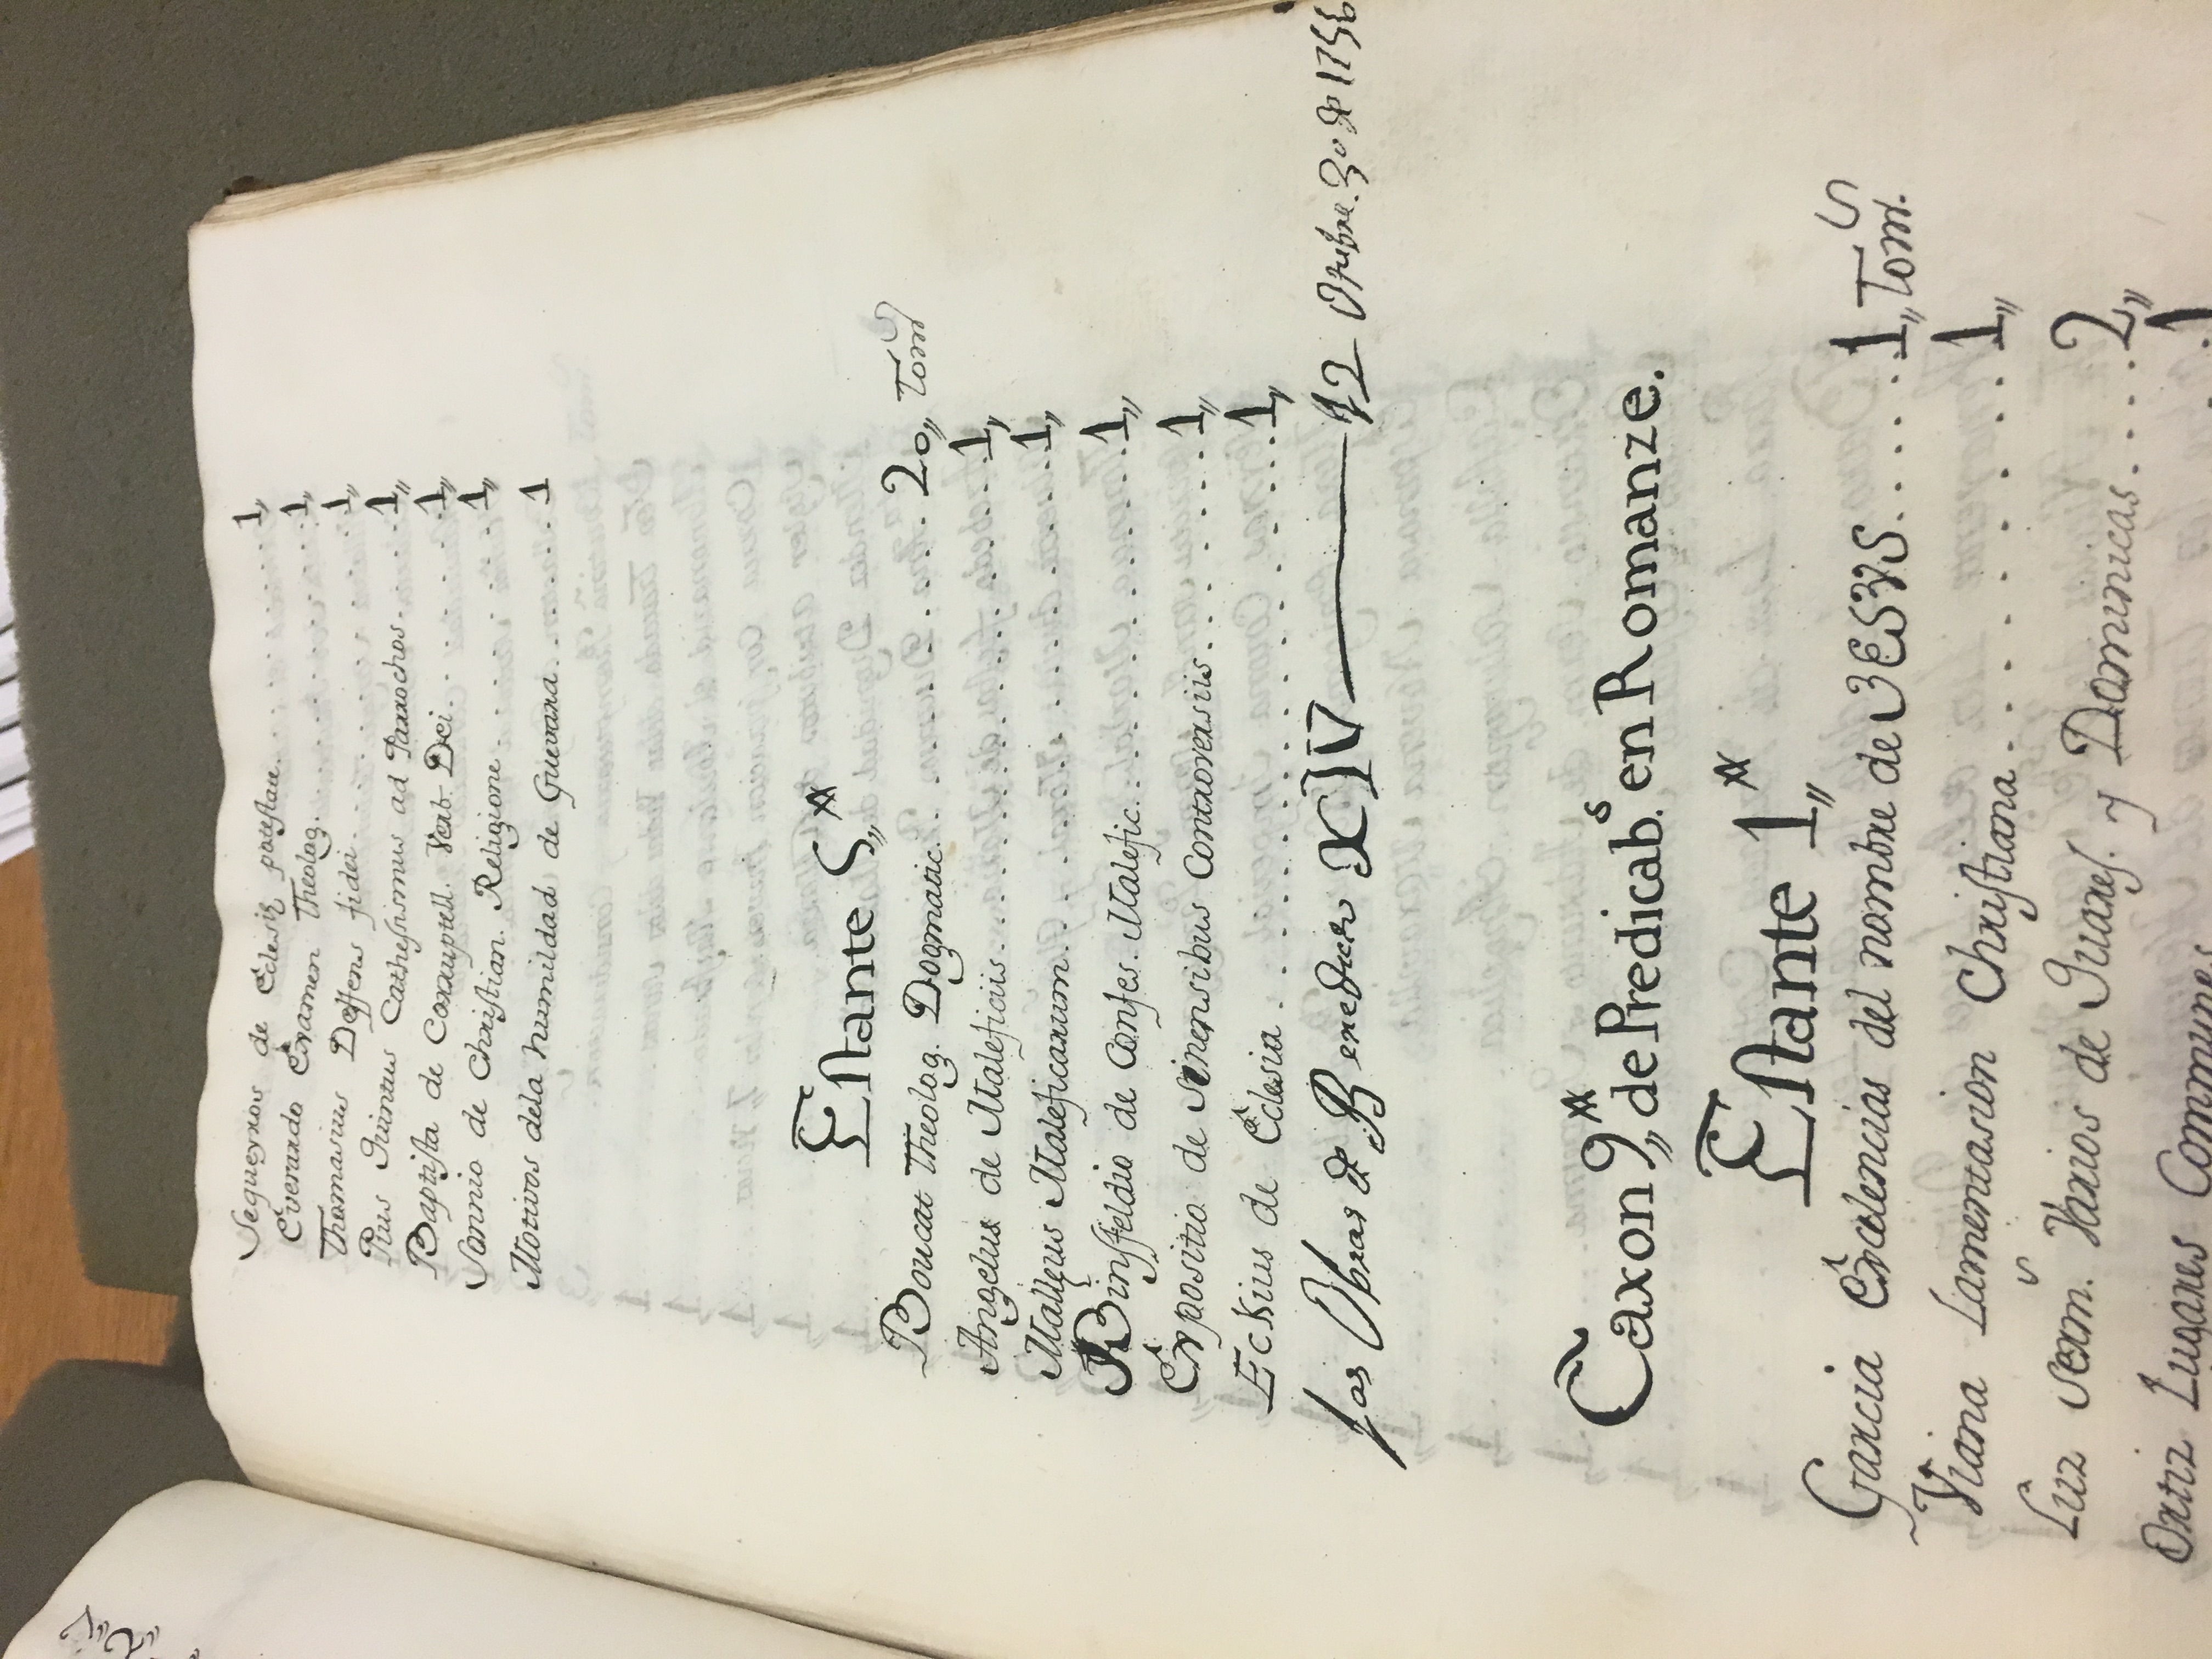 Segueyros de Êclesię potestate. . . . . . . . . . 1,,
Everardo Êxamen Theolog. . . . . . . . . . 1,,
Thomasius Deffens fidei. . . . . . . . . . 1,,
Pius Quintus Cathesismus ad Parrochos. . . . . 1,,
Baptista de Corruptell. Verb. Dei. . . . . . . 1,,
Sonnio de Christian. Religione. . . . . . . . 1,,
Motivos dela humildad de Guevara. . . . . . . 1
Estante 5,,ª
Boucat Theolog. Dogmatic. . . . . . . . . 20,, Tomˢ
Angelus de Maleficiis. . . . . . . . . . . . . 1,,
Malleus Maleficarum. . . . . . . . . . . . 1,,
Binsfeldio de Confes. Malefic. . . . . . . . . . . 1,,
Êxpositio de Sinensibus Controversiis. . . . . . . 1,,
Eckius de Êclesia . . . . . . . . . . . . . . . 1,,
Las Obras de Benedicto XIV — 12 Otubre. 30 de 1756
Caxon 9,,ª de Predicab.ˢ en Romanze.
Estante 1,,ª
Garcia Êxcelencias del nombre de JESVS. . . . . . 1,, Tom.ˢ
Viana Lamentasion Christiana . . . . . . . . . . 1,,
Luz Serm.ˢ Varios de Quares. y Dominicas. . . . 2,,
Ortiz Lugares Communes . . 1